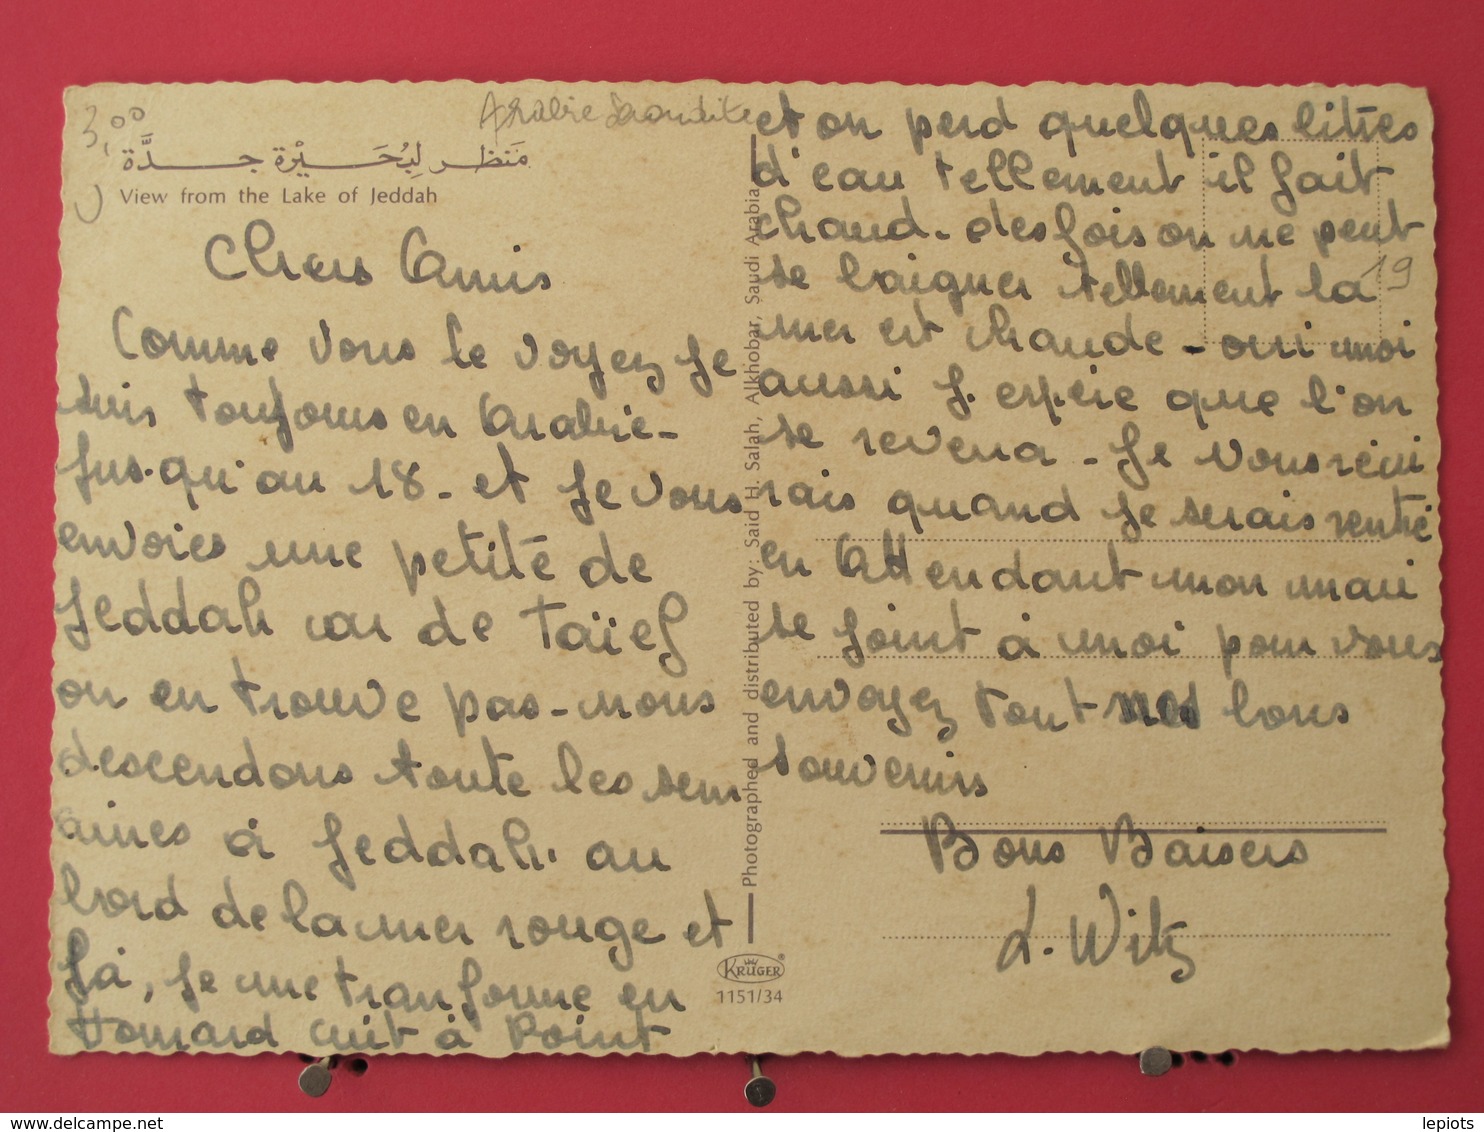 3,00
Arabie Saoudite
مَنظر لِبُحَيْرة جدَّة
View from the Lake of Jeddah
Chers Amis
Comme vous le voyez Je
suis toujours en Arabie-
Jusqu'au 18 - et Je vous
envoies une petite de
Jeddah car de Taïef
on en trouve pas - nous
descendons toute les sem
aines à Jeddah. au
bord de la mer rouge et
là, Je me tranforme en
Homard cuit à Point
et on perd quelques litres
d'eau tellement il fait
chaud - des fois on ne peut
se baigner tellement la
19
mer est chaude - oui moi
aussi J. espère que l'on
se revera - Je vous récri
rais quand Je serais rentré
en Attendant mon mari
se joint à moi pour vous
envoyez tout nos bons
souvenirs
Bons Baisers
L. Witz
Photographed and distributed by: Said H. Salah, Alkhobar, Saudi Arabia
KRÜGER®
1151/34
delcampe.net
lepiots